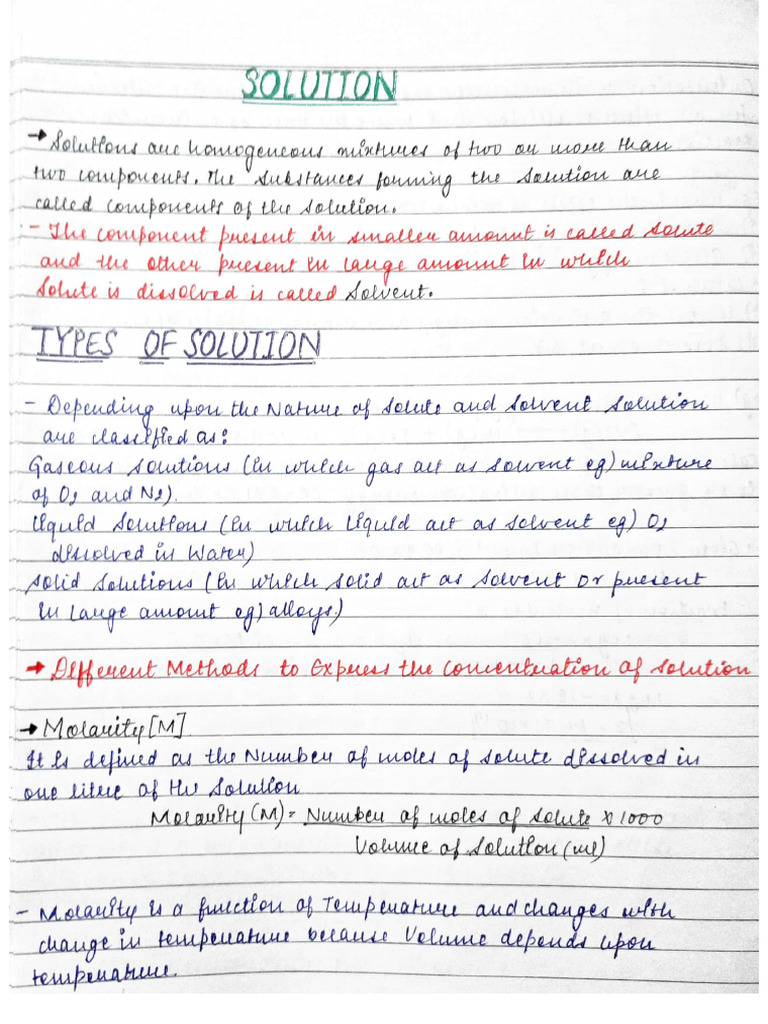 SOLUTION
→ Solutions are homogeneous mixtures of two or more than
two components. The substances forming the solution are
called components of the solution.
- The component present in smaller amount is called solute
and the other present in large amount in which
solute is dissolved is called solvent.
TYPES OF SOLUTION
- Depending upon the Nature of solute and solvent solution
are classified as:
Gaseous solutions (in which gas act as solvent eg) mixture
of O2 and N2).
liquid solutions (in which liquid act as solvent eg) O2
dissolved in Water)
solid solutions (in which solid act as solvent or present
in large amount eg) alloys)
→ Different Methods to Express the concentration of solution
→ Molarity [M]
It is defined as the Number of moles of solute dissolved in
one litre of the solution
Molarity (M) = Number of moles of solute × 1000
Volume of solution (ml)
- Molarity is a function of Temperature and changes with
change in temperature because Volume depends upon
temperature.